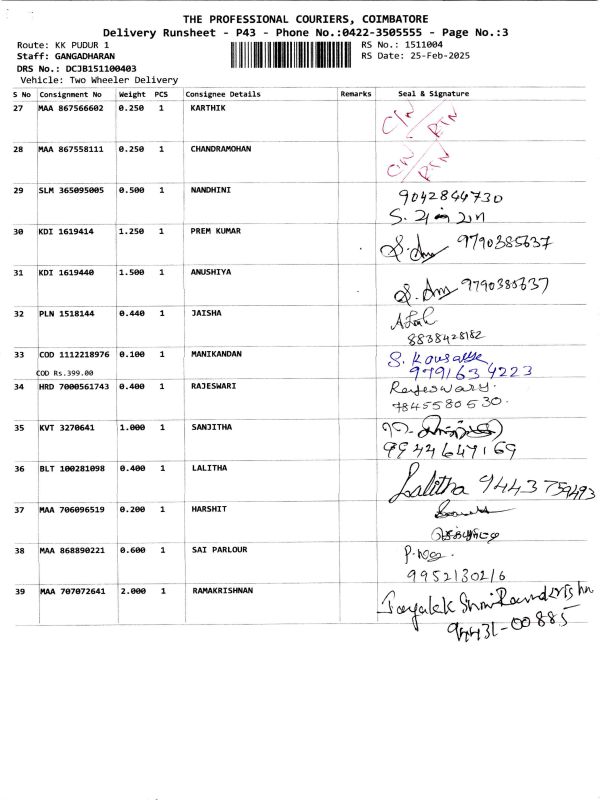 THE PROFESSIONAL COURIERS, COIMBATORE
Delivery Runsheet - P43 - Phone No.:0422-3505555 - Page No.:3
Route: KK PUDUR 1 RS No.: 1511004
Staff: GANGADHARAN RS Date: 25-Feb-2025
DRS No.: DCJB151100403
Vehicle: Two Wheeler Delivery
S No Consignment No Weight PCS Consignee Details Remarks Seal & Signature
27 MAA 867566602 0.250 1 KARTHIK C/N RTN
28 MAA 867558111 0.250 1 CHANDRAMOHAN C/N RTN
29 SLM 365095005 0.500 1 NANDHINI 9042844730
30 KDI 1619414 1.250 1 PREM KUMAR 9790385637
31 KDI 1619440 1.500 1 ANUSHIYA 9790385637
32 PLN 1518144 0.440 1 JAISHA
8838428182
33 COD 1112218976 0.100 1 MANIKANDAN S. Kousalya
COD Rs.399.00 9791634223
34 HRD 7000561743 0.400 1 RAJESWARI Rajeswary.
7845580530.
35 KVT 3270641 1.000 1 SANJITHA
9944647169
36 BLT 100281098 0.400 1 LALITHA Lalitha 9443759493
37 MAA 706096519 0.200 1 HARSHIT
38 MAA 868890221 0.600 1 SAI PARLOUR
9952130216
39 MAA 707072641 2.000 1 RAMAKRISHNAN
94431-00885